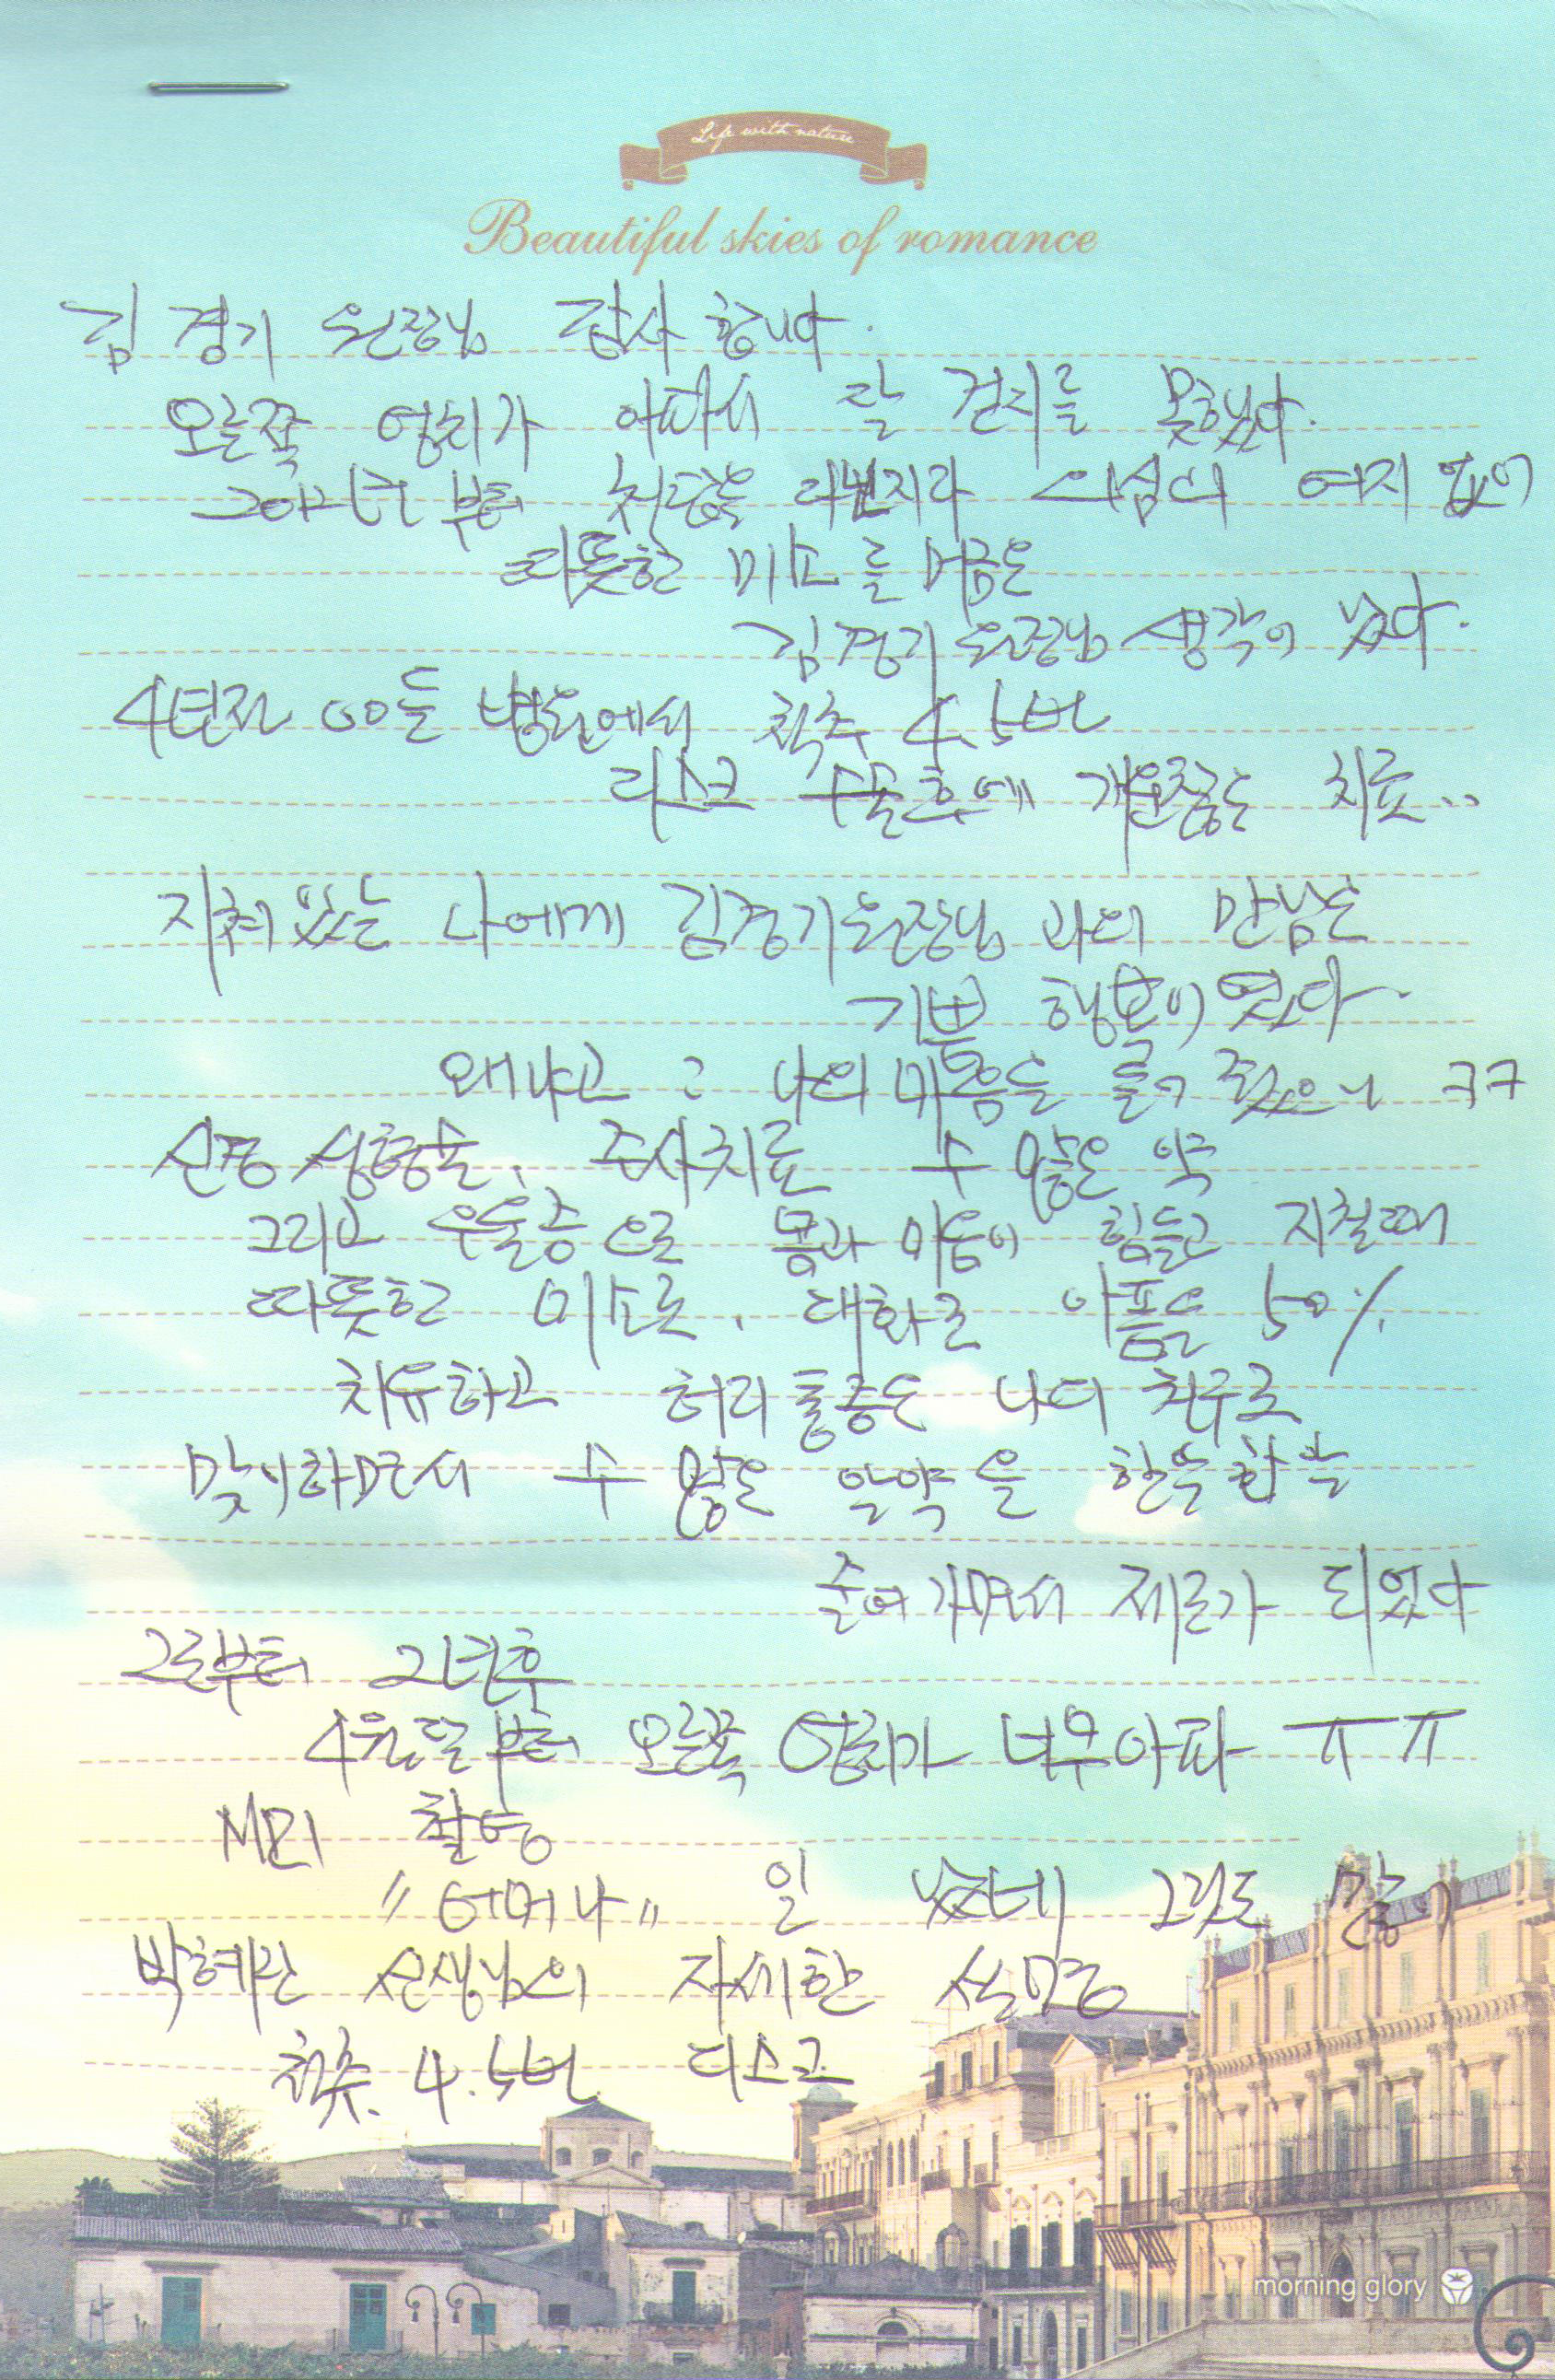 Life with nature
Beautiful skies of romance
김경기 원장님 감사합니다.
오른쪽 엉치가 아파서 잘 걷지를 못했다.
2012년부터 첫단골을 의심의 여지 없이
따뜻한 미소를 머금은
김경기원장님 생각이 났다.
4년전 병원에서 척추 4.5번
디스크 수술후에 치료..
지쳐있는 나에게 김경기원장님 과의 만남은
기쁨 행복이였다
왜냐고? 나의 마음을 들어 줬으니 ㅋㅋ
신경 성형술, 주사치료 수 많은 약
그리고 우울증으로 몸과 마음이 힘들고 지칠때
따뜻한 미소로, 대화로 아픔을 50%
치유하고 허리통증은 나의 친구로
맞이하면서 수 많은 알약을 한알 한알
줄여가면서 제로가 되었다
그로부터 2년후
4월달부터 오른쪽 엉치가 너무아파 ㅠㅠ
MRI 촬영
"어머나" 일 났네 그것도 많이
박혜란 선생님의 자세한 설명
척추. 4.5번 디스크
morning glory